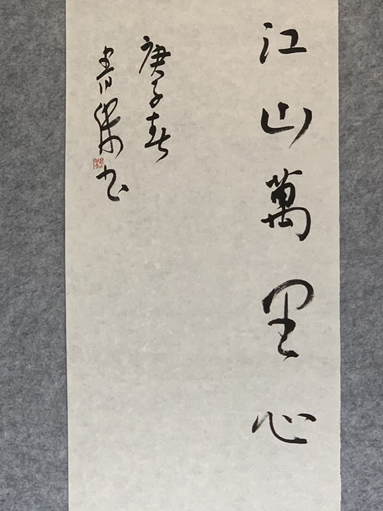 江山萬里心
庚子春
書